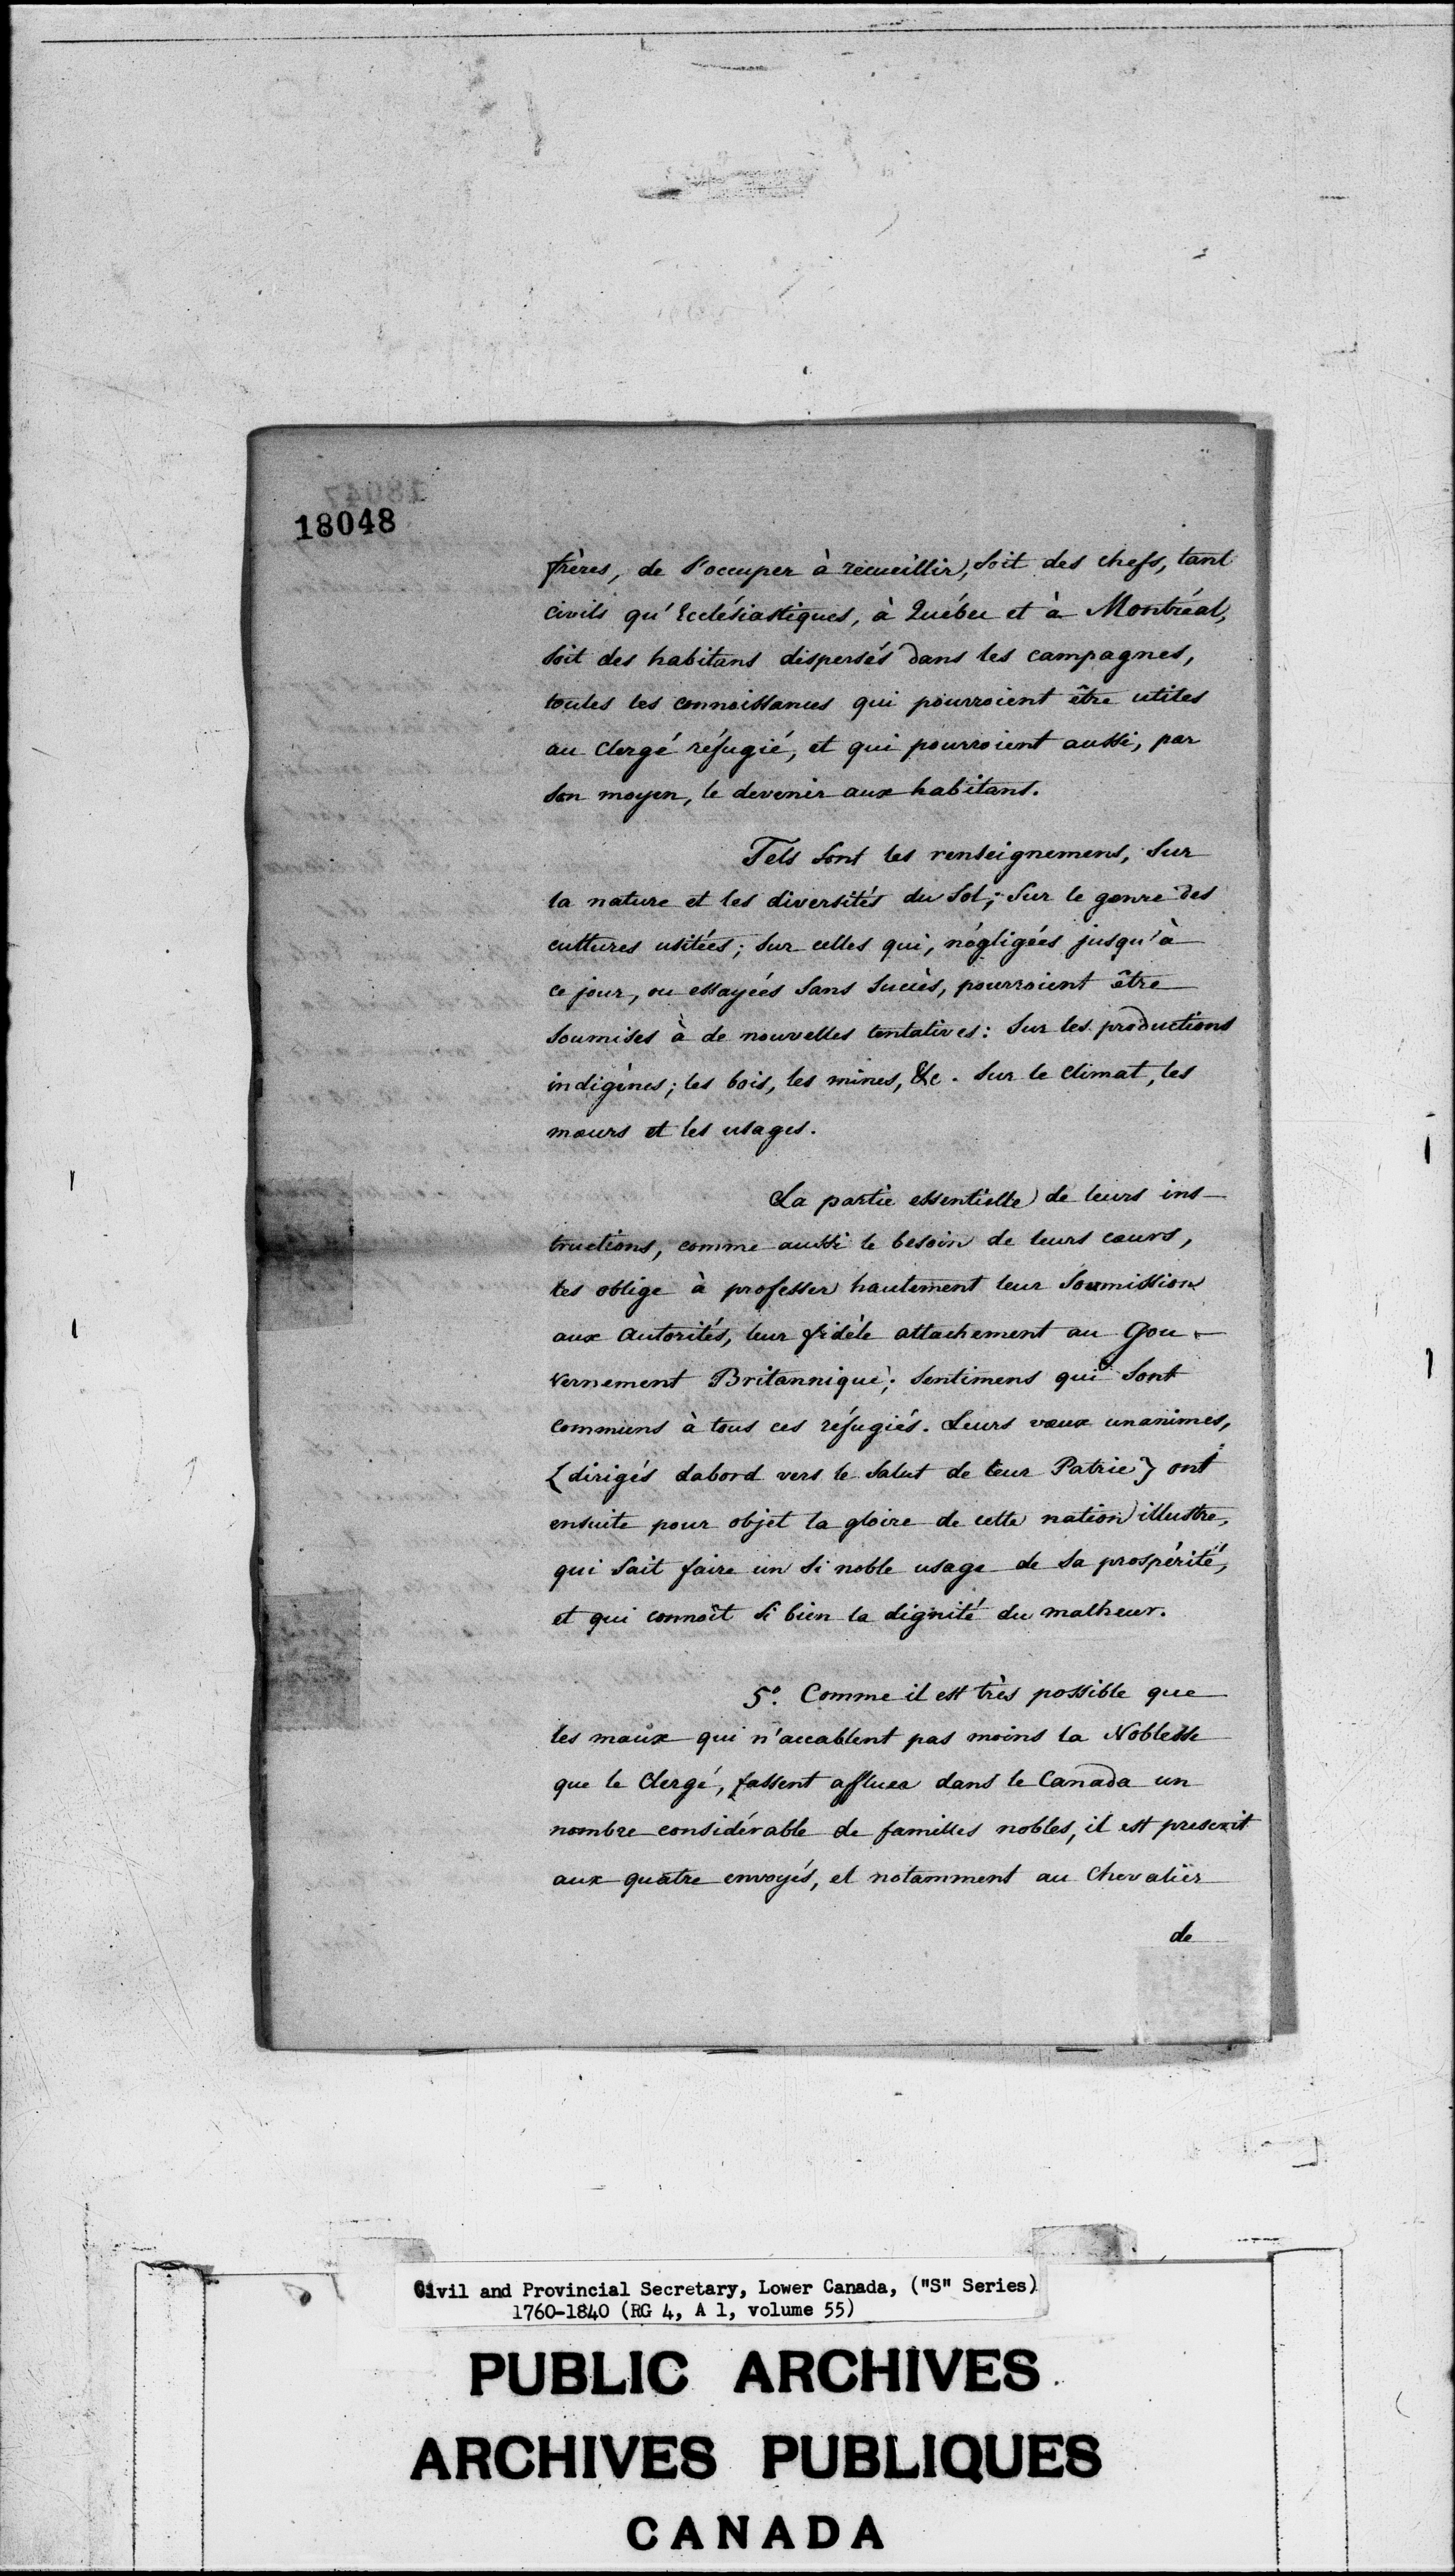 18047
18048
frères, de s'occuper à recueillir, soit des chefs, tant
civils qu'Ecclésiastiques, à Québec et à Montréal,
soit des habitans dispersés dans les campagnes,
toutes les connoissances qui pourroient être utiles
au Clergé réfugié, et qui pourroient aussi, par
son moyen, le devenir aux habitans.
Tels sont les renseignemens, sur
la nature et les diversités du sol; sur le genre des
cultures usitées; sur celles qui, négligées jusqu'à
ce jour, ou essayées sans succès, pourroient être
soumises à de nouvelles tentatives: sur les productions
indigènes; les bois, les mines, &c. sur le climat, les
mœurs et les usages.
La partie essentielle de leurs ins-
tructions, comme aussi le besoin de leurs cœurs,
les oblige à professer hautement leur soumission
aux autorités, leur fidèle attachement au Gou-
vernement Britannique; sentimens qui sont
communs à tous ces réfugiés. Leurs vœux unanimes,
{dirigés dabord vers le salut de leur Patrie} ont
ensuite pour objet la gloire de cette nation illustre,
qui sait faire un si noble usage de sa prospérité,
et qui connoît si bien la dignité du malheur.
5º. Comme il est très possible que
les maux qui n'accablent pas moins la Noblesse
que le Clergé, fassent affluer dans le Canada un
nombre considérable de familles nobles, il est prescrit
aux quatre envoyés, et notamment au Chevalier
de
Civil and Provincial Secretary, Lower Canada, ("S" Series)
1760-1840 (RG 4, A 1, volume 55)
PUBLIC ARCHIVES
ARCHIVES PUBLIQUES
CANADA